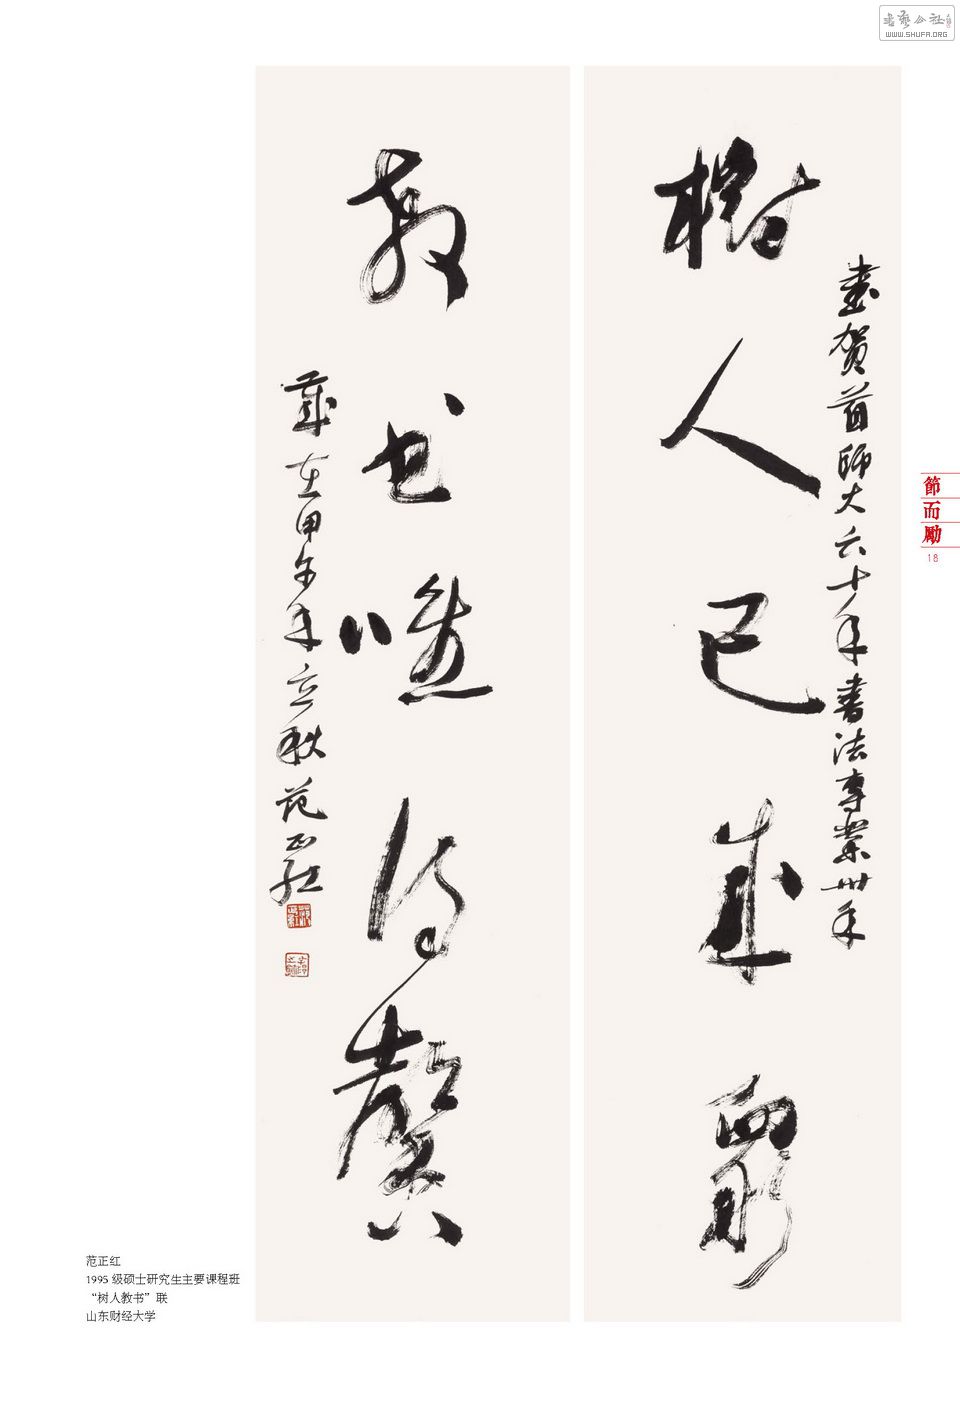 書藝公社
WWW.SHUFA.ORG
樹人已成眾
書賀首師大六十年書法專業卅年
教書喚得馨
歲在甲午年立秋范正紅
節而勵
18
范正红
1995 级硕士研究生主要课程班
“树人教书”联
山东财经大学